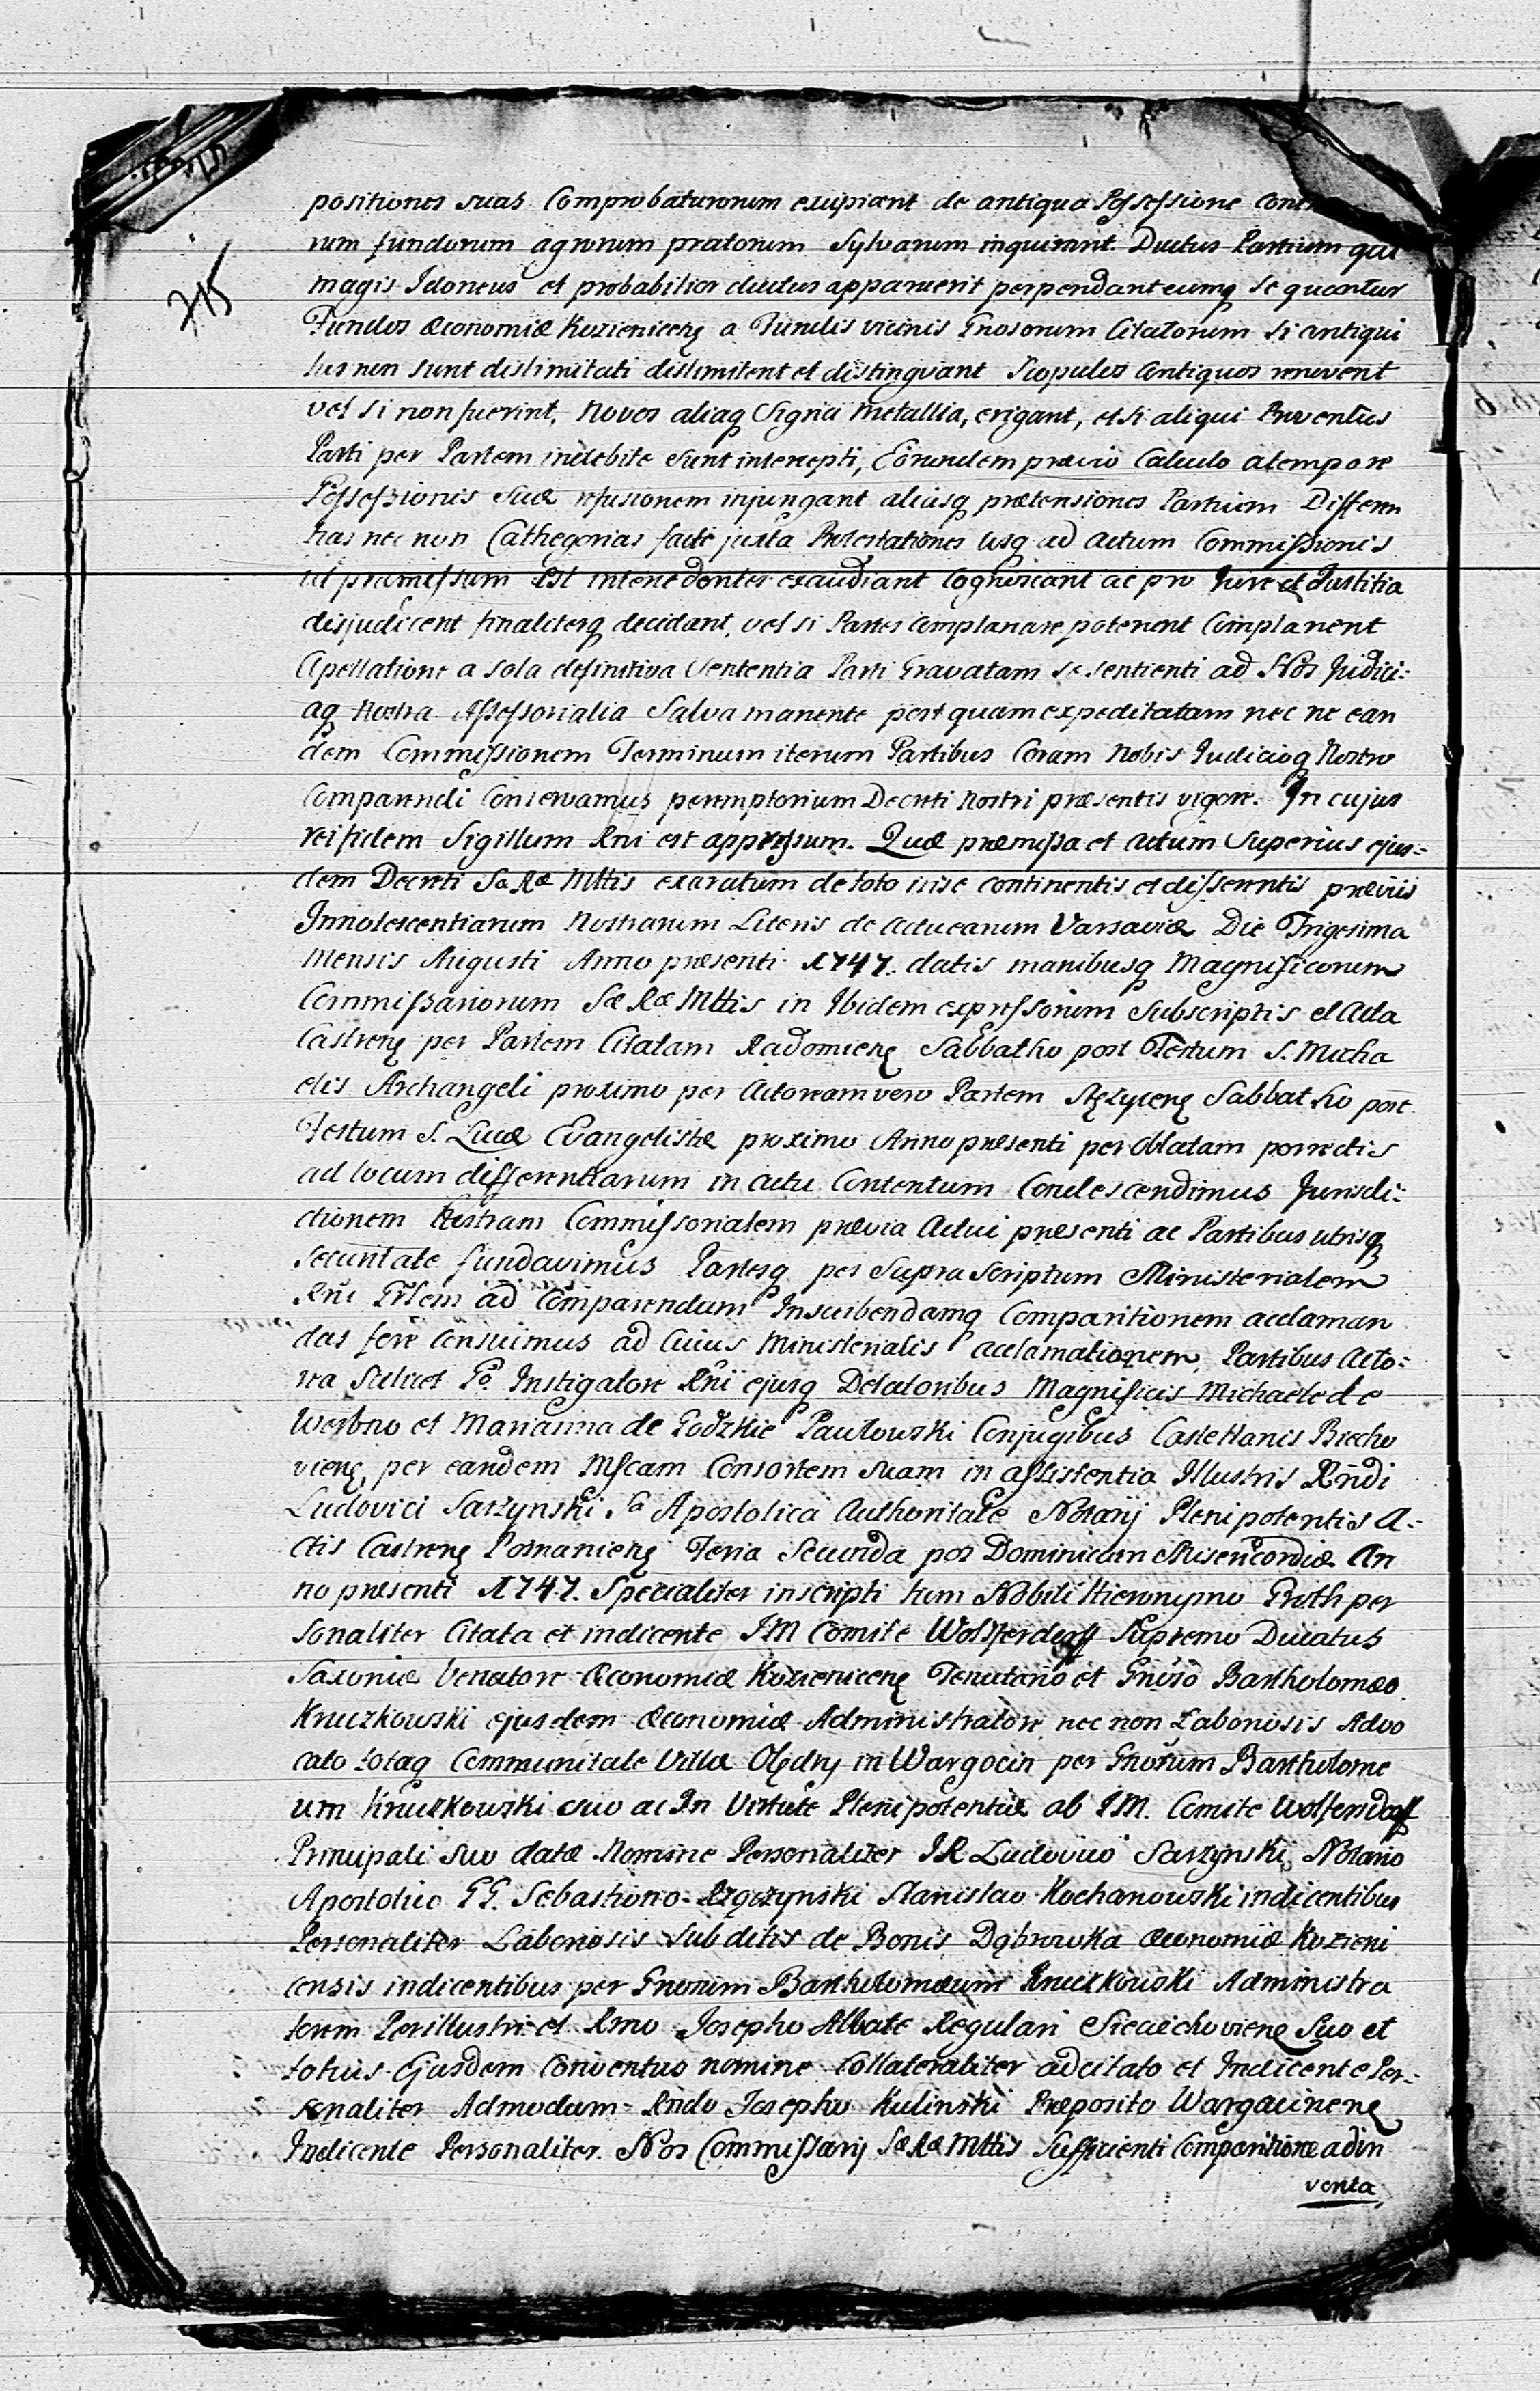 715
positiones suas Comprobaturorum excipiant de antiqua Possessione
rum fundorum agrorum pratorum Sylvarum inquirant Ductus Partium qui
magis Idoneus et probabilior ductus apparuerit perpendant eumq sequantur
Fundos œconomiæ Kozieniceng a Fundis vicinis Gnosorum Citatorum si antiqui
tus non sunt dislimitati dislimitent et distingvant Scopulos Antiquos renovent
vel si non fuerint, Novos aliaq Signa metallia, erigant, et si aliqui Proventus
Parti per Partem indebite sunt intercepti, Eorundem prævio Calculo a tempore
Possessionis Suæ refusionem injungant aliasq prætensiones Partium Differen
tias nec non Cathegorias facti juxta Protestationes usq ad actum Commissionis
ut præmissum est intercedentes exaudiant Cognoscant ac pro Jure et Justitia
disjudicent finaliterq decidant, vel si Partes Complanare poterint Complanent
Apellatione a sola definitiva Sententia Parti Gravatam se sentienti ad Nos Judici=
aq Nostra Assessorialia Salva manente post quam expeditatam nec ne ean
dem Commissionem Terminum iterum Partibus Coram Nobis Judicioq Nostro
Comparendi Conservamus peremptorium Decreti Nostri præsentis vigore. In cujus
rei fidem Sigillum Rni est appressum. Quæ præmissa et actum Superius ejus=
dem Decreti Sæ Ræ Mttis exaratum de toto in se continentis et disserentis præviis
Innotescentiarum Nostrarum Literis de actu earum Varsaviæ Die Trigesima
Mensis Augusti Anno præsenti 1747. datis manibusq Magnificorum
Commissariorum Sæ Ræ Mttis in Ibidem expressorum Subscriptis et Acta
Castreng per Partem Citatam Radomieng Sabbatho post Festum S. Micha
elis Archangeli proximo per Actoream vero Partem Stężyceng Sabbatho post
Festum S. Lucæ Evangelistæ proximo Anno præsenti per oblatam porrectis
ad locum differentiarum in actu Contentum Condescendimus Jurisdi=
ctionem Nostram Commissorialem prævia Actui præsenti ac Partibus utrisq
securitate fundavimus Partesq per Supra Scriptum Ministerialem
Rni Grlem ad Comparendum Inscribendamq Comparitionem acclaman
das fore Censuimus ad Cuius Ministerialis acclamationem, Partibus Acto=
rea Scilicet Go. Instigatore Rni ejusq Delatoribus Magnificis Michaele de
Werbno et Marianna de Godzkie Pawłowski Conjugibus Castellanis Biecho
vieng per eandem Mscam Consortem Suam in assistentia Illustris Rndi
Ludovici Sarzynski Sa Apostolica Authoritate Notarij Plenipotentis A=
ctis Castreng Posnanieng Feria Secunda pos Dominicam Misericordiæ An
no præsenti 1747. Specialiter inscripti tum Nobili Hieronymo Groth per
sonaliter Citata et indicente IM Comite Wolfferdorff Supremo Ducatus
Saxoniæ Venatore Œconomiæ Kozieniceng Tenutario et Gnoso Bartholomæo
Kruszkowski ejusdem Œconomiæ Administratore nec non Laboriosis Advo
cato totaq Communitate Villæ Olędry in Wargocin per Gnosum Bartholome
um Kruszkowski suo ac In Virtute Plenipotentiæ ab IM. Comite Wolfendorff
Principali suo datæ Nomine Personaliter IR Ludovico Sarzynski Notario
Apostolico GG. Sebastiano Rzączynski Stanislao Kochanowski indicentibus
Personaliter Laboriosis Subditis de Bonis Dąbrowka Œconomiæ Kozieni
censis indicentibus per Gnosum Bartholomæum Kruszkowski Administra
torem Perillustri et Rmo Josepho Abbate Regulari Sieciechovieng Suo et
totius Ejusdem Conventus nomine Collateraliter adcitato et Indicente Per=
sonaliter Admodum Rndo Josepho Kulinski Præposito Wargocineng
Indicente Personaliter. Nos Commissarij Sæ Ræ Mttis Sufficienti Comparitione adin
venta